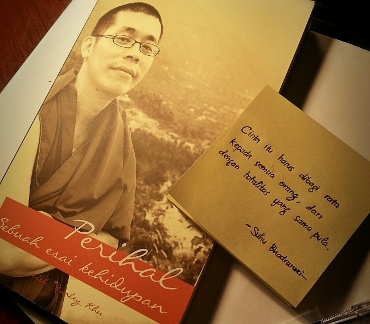 Perihal
Sebuah esai kehidupan
Cinta itu harus dibagi rata
kepada semua orang, dan
dengan totalitas yang sama pula.